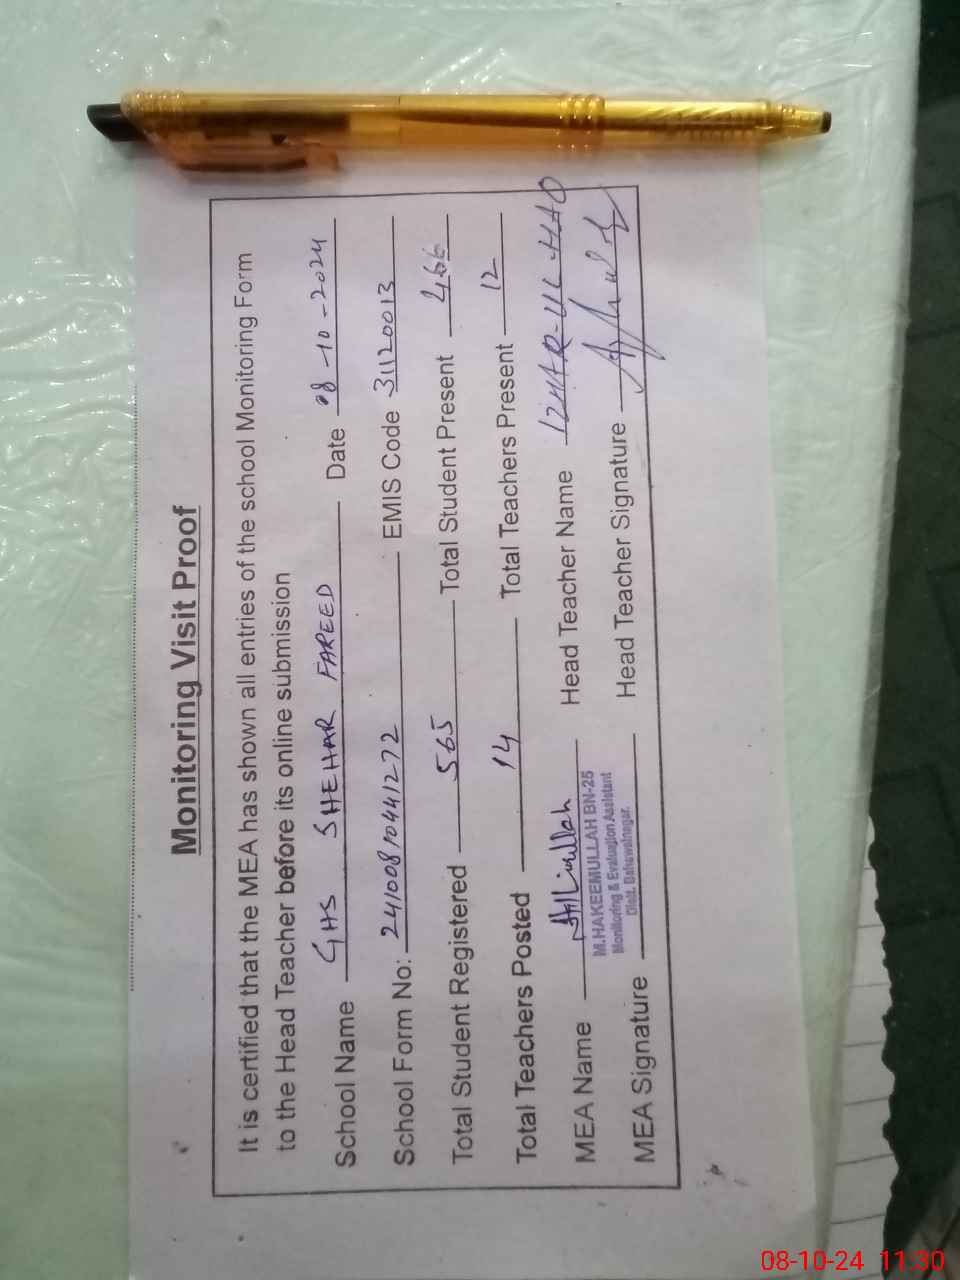 Monitoring Visit Proof
It is certified that the MEA has shown all entries of the school Monitoring Form
to the Head Teacher before its online submission
School Name GHS SHEHAR FAREED Date 08-10-2024
School Form No: 24100810441272 EMIS Code 31120013
Total Student Registered 565 Total Student Present 466
Total Teachers Posted 14 Total Teachers Present 12
MEA Name Head Teacher Name IZHAR-UL-HAQ
M.HAKEEMULLAH BN-25
Monitoring & Evaluation Assistant
Distt. Bahawalnagar.
MEA Signature Head Teacher Signature
08-10-24 11:30